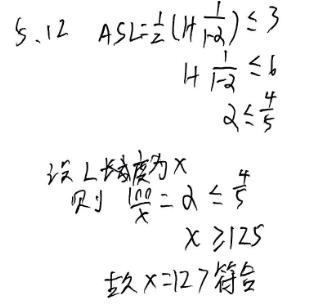 5.12 ASL=½(1+\frac{1}{1-2})≤3
1+\frac{1}{1-2}≤6
2≤\frac{4}{5}
设L长度为x
则 \frac{100}{x}=2≤\frac{4}{5}
x≥125
故x=127符合